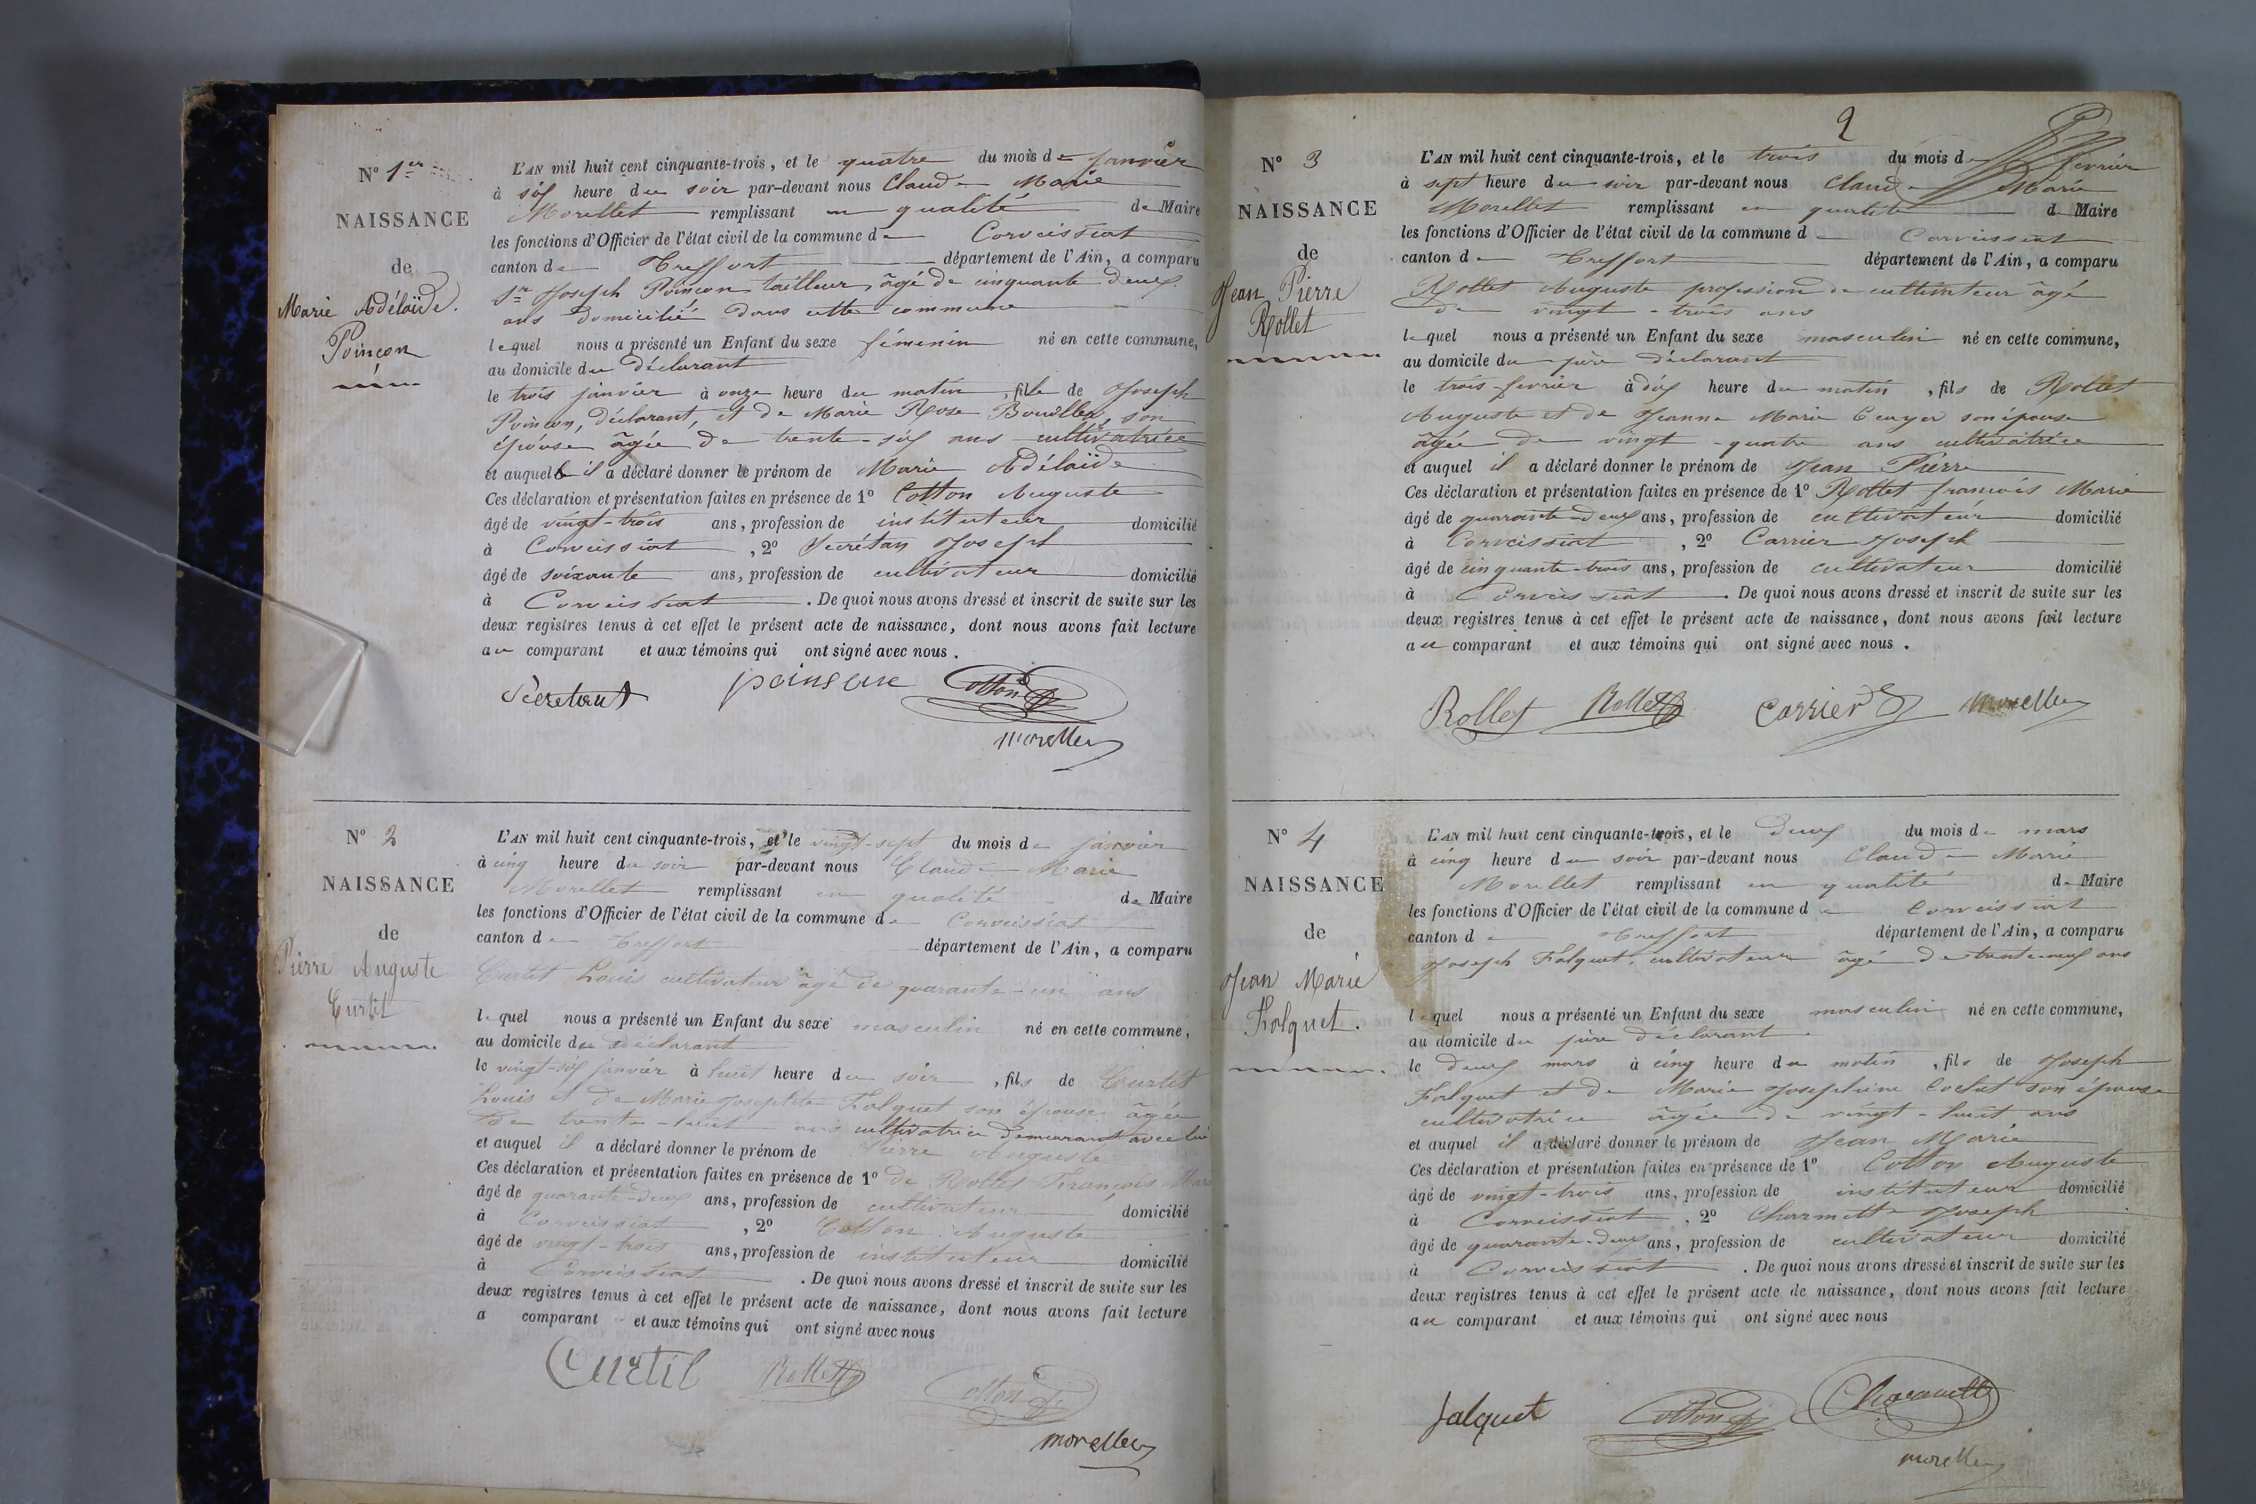 N° 1er
NAISSANCE
de
Marie Adélaïde
Poinçon
L'AN mil huit cent cinquante-trois, et le quatre du mois de janvier
à six heure du soir par-devant nous Claude Marie
Morellet remplissant en qualité de Maire
les fonctions d'Officier de l'état civil de la commune de Corveissiat
canton de Treffort département de l'Ain, a comparu
Sr Joseph Poinçon tailleur, âgé de cinquante deux
ans domicilié dans cette commune
lequel nous a présenté un Enfant du sexe féminin né en cette commune,
au domicile du déclarant
le trois janvier à onze heure du matin, fille de Joseph
Poinçon, déclarant, et de Marie Rose son
épouse âgée de trente-six ans cultivatrice
et auquelle il a déclaré donner le prénom de Marie Adélaïde
Ces déclaration et présentation faites en présence de 1° Cotton Auguste
âgé de vingt-trois ans, profession de instituteur domicilié
à Corveissiat, 2° Secrétan Joseph
âgé de soixante ans, profession de cultivateur domicilié
à Corveissiat. De quoi nous avons dressé et inscrit de suite sur les
deux registres tenus à cet effet le présent acte de naissance, dont nous avons fait lecture
au comparant et aux témoins qui ont signé avec nous.
Secretant Cotton
morellet
N° 2
NAISSANCE
de
Pierre Auguste
Curtil
L'AN mil huit cent cinquante-trois, et le vingt-sept du mois de janvier
à cinq heure du soir par-devant nous Claude Marie
Morellet remplissant en qualité de Maire
les fonctions d'Officier de l'état civil de la commune de Corveissiat
canton de Treffort département de l'Ain, a comparu
Curtet Louis cultivateur âgé de quarante-un ans
lequel nous a présenté un Enfant du sexe masculin né en cette commune,
au domicile du déclarant
le vingt-six janvier à huit heure du soir, fils de Curtet
Louis et de Marie Josephte Falquet son épouse âgée
de trente-huit ans cultivatrice demeurant avec lui
et auquel il a déclaré donner le prénom de Pierre Auguste
Ces déclaration et présentation faites en présence de 1° de Rollet François Mari
âgé de quarante-deux ans, profession de cultivateur domicilié
à Corveissiat, 2° Cotton Auguste
âgé de vingt-trois ans, profession de instituteur domicilié
à Corveissiat. De quoi nous avons dressé et inscrit de suite sur les
deux registres tenus à cet effet le présent acte de naissance, dont nous avons fait lecture
a comparant et aux témoins qui ont signé avec nous
Curtil Rollet Cotton
morellet
2
N° 3
NAISSANCE
de
Jean Pierre
Rollet
L'AN mil huit cent cinquante-trois, et le trois du mois de février
à sept heure du soir par-devant nous Claude Marie
Morellet remplissant en qualité de Maire
les fonctions d'Officier de l'état civil de la commune d Corveissiat
canton d Treffort département de l'Ain, a comparu
Rollet Auguste profession de cultivateur âgé
de vingt-trois ans
lequel nous a présenté un Enfant du sexe masculin né en cette commune,
au domicile du père déclarant
le trois février à dix heure du matin, fils de Rollet
Auguste et de Jeanne Marie son épouse
âgée de vingt-quatre ans cultivatrice
et auquel il a déclaré donner le prénom de Jean Pierre
Ces déclaration et présentation faites en présence de 1° Rollet françois Marie
âgé de quarante-deux ans, profession de cultivateur domicilié
à Corveissiat, 2° Carrier Joseph
âgé de cinquante-trois ans, profession de cultivateur domicilié
à Corveissiat. De quoi nous avons dressé et inscrit de suite sur les
deux registres tenus à cet effet le présent acte de naissance, dont nous avons fait lecture
au comparant et aux témoins qui ont signé avec nous.
Rollet Rollet Carrier morellet
N° 4
NAISSANCE
de
Jean Marie
Falquet.
L'AN mil huit cent cinquante-trois, et le deux du mois de mars
à cinq heure du soir par-devant nous Claude Marie
Morellet remplissant en qualité de Maire
les fonctions d'Officier de l'état civil de la commune d Corveissiat
canton d Treffort département de l'Ain, a comparu
Joseph Falquet, cultivateur âgé de trente neuf ans
lequel nous a présenté un Enfant du sexe masculin né en cette commune,
au domicile du père déclarant
le deux mars à cinq heure du matin, fils de Joseph
Falquet et de Marie Josephine son épouse
cultivatrice âgée de vingt-huit ans
et auquel il a déclaré donner le prénom de Jean Marie
Ces déclaration et présentation faites en présence de 1° Cotton Auguste
âgé de vingt-trois ans, profession de instituteur domicilié
à Corveissiat, 2° Charmette Joseph
âgé de quarante-deux ans, profession de cultivateur domicilié
à Corveissiat. De quoi nous avons dressé et inscrit de suite sur les
deux registres tenus à cet effet le présent acte de naissance, dont nous avons fait lecture
au comparant et aux témoins qui ont signé avec nous
falquet Cotton
morellet